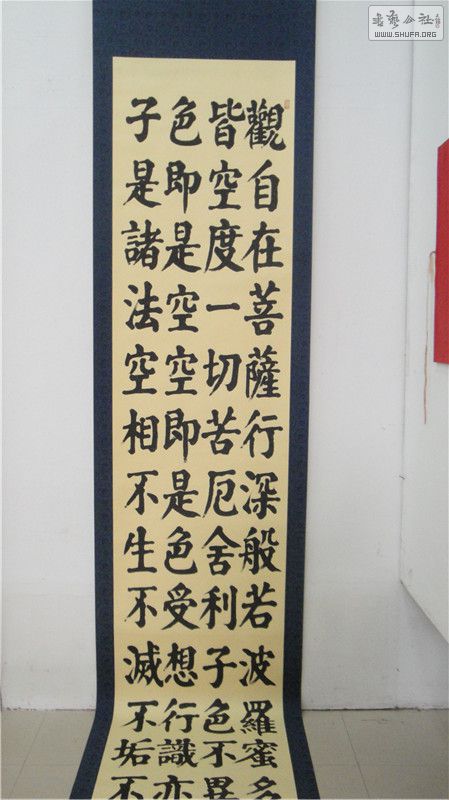 觀自在菩薩行深般若波羅蜜多
皆空度一切苦厄舍利子色不異
色即是空空即是色受想行識亦
子是諸法空相不生不滅不垢不
書藝公社
WWW.SHUFA.ORG